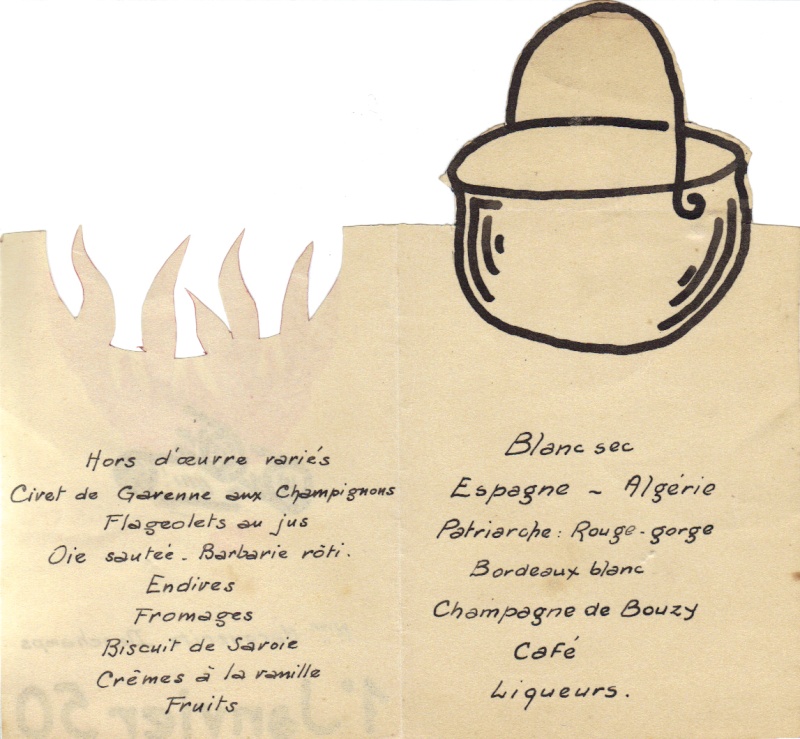 Hors d'œuvre variés
Civet de Garenne aux Champignons
Flageolets au jus
Oie sautée - Barbarie rôti.
Endives
Fromages
Biscuit de Savoie
Crêmes à la vanille
Fruits
Blanc sec
Espagne ~ Algérie
Patriarche : Rouge-gorge
Bordeaux blanc
Champagne de Bouzy
Café
Liqueurs.
1er Janvier 50